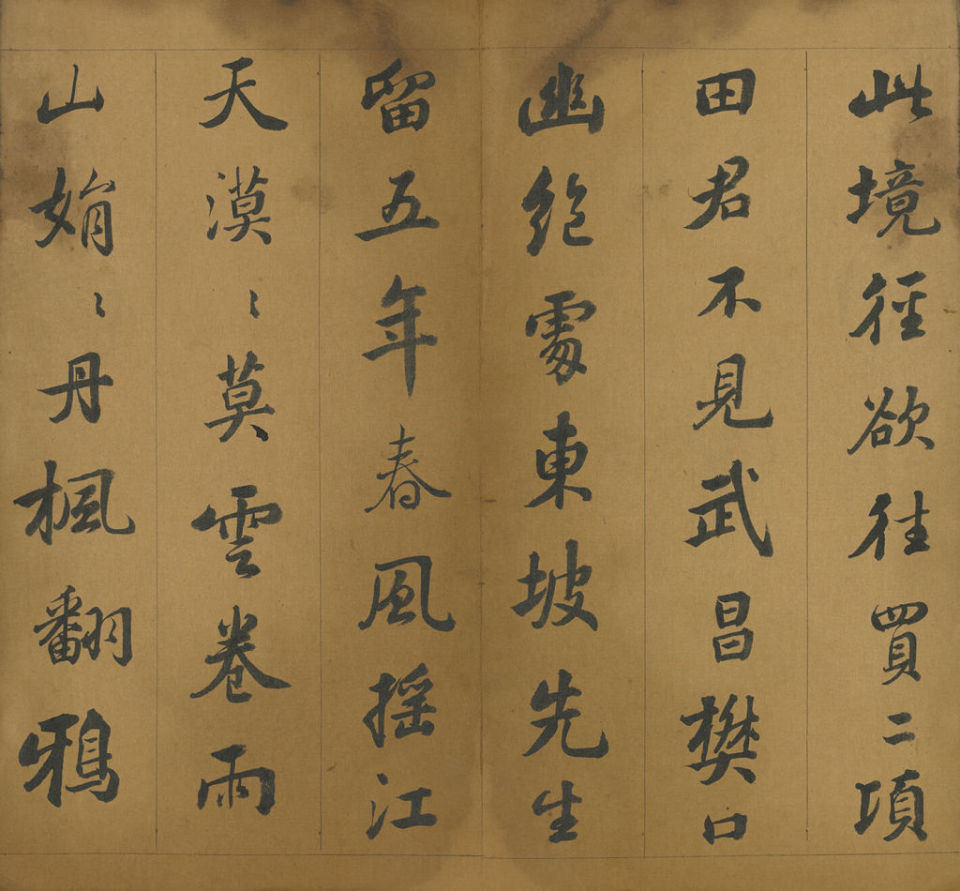 此境徑欲往買二項
田君不見武昌樊口
幽絕處東坡先生
留五年春風搖江
天漠〻莫雲卷雨
山娟〻丹楓翻鴉